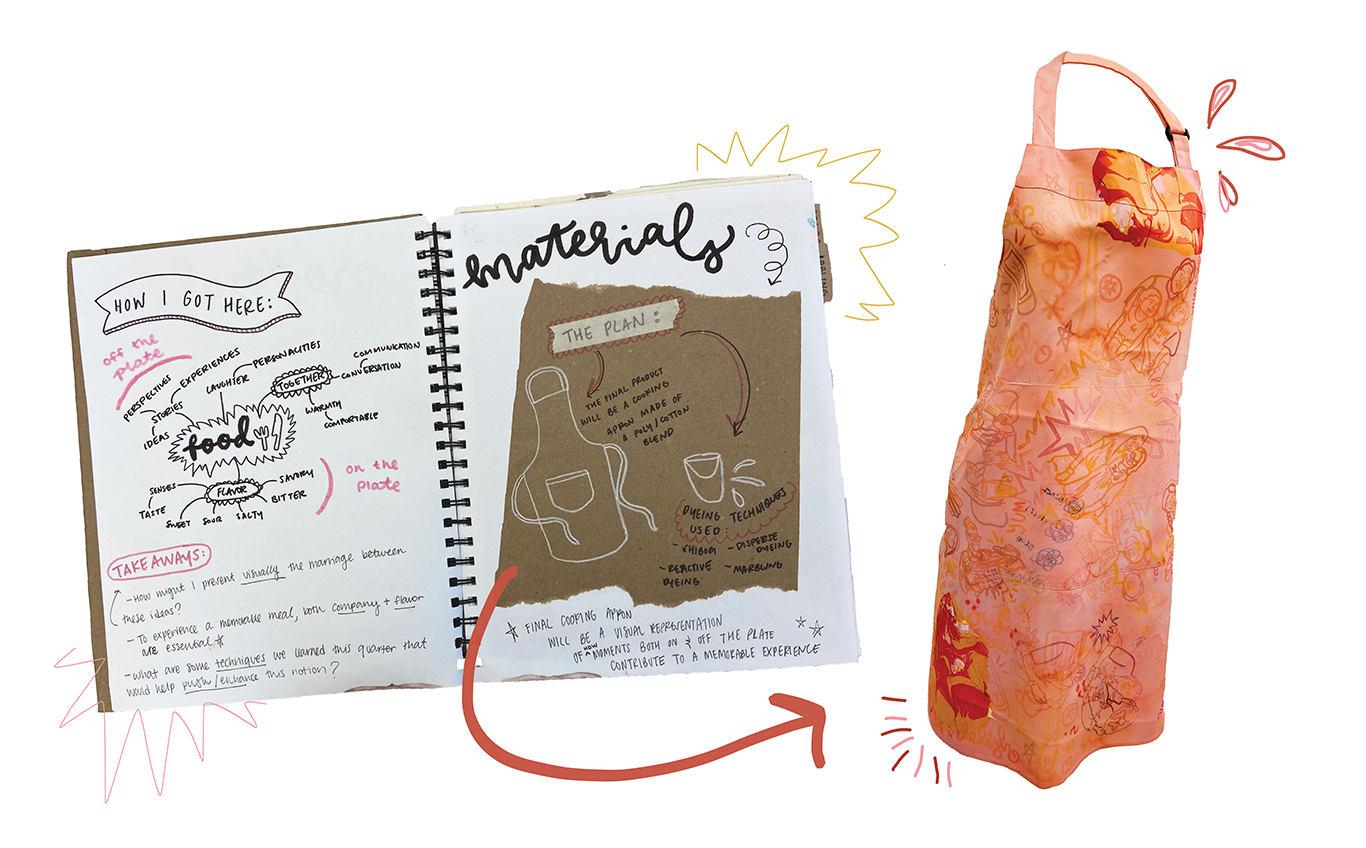 HOW I GOT HERE:
off the
plate
PERSPECTIVES
STORIES
IDEAS
EXPERIENCES
LAUGHTER
PERSONALITIES
TOGETHER
COMMUNICATION
CONVERSATION
WARMTH
COMFORTABLE
food
on the
plate
SENSES
TASTE
FLAVOR
SWEET
SOUR
SALTY
BITTER
SAVORY
TAKEAWAYS:
- How might I present visually the marriage between
these ideas?
- To experience a memorable meal, both company + flavor
are essential *
- what are some techniques we learned this quarter that
would help push/enhance this notion?
materials
THE PLAN:
THE FINAL PRODUCT
WILL BE A COOKING
APRON MADE OF
A POLY/COTTON
BLEND
DYEING TECHNIQUES
USED:
- SHIBORI - DISPERSE
DYEING
- REACTIVE - MARBLING
DYEING
FINAL COOKING APRON
WILL BE A VISUAL REPRESENTATION
OF HOW MOMENTS BOTH ON & OFF THE PLATE
CONTRIBUTE TO A MEMORABLE EXPERIENCE
YUM